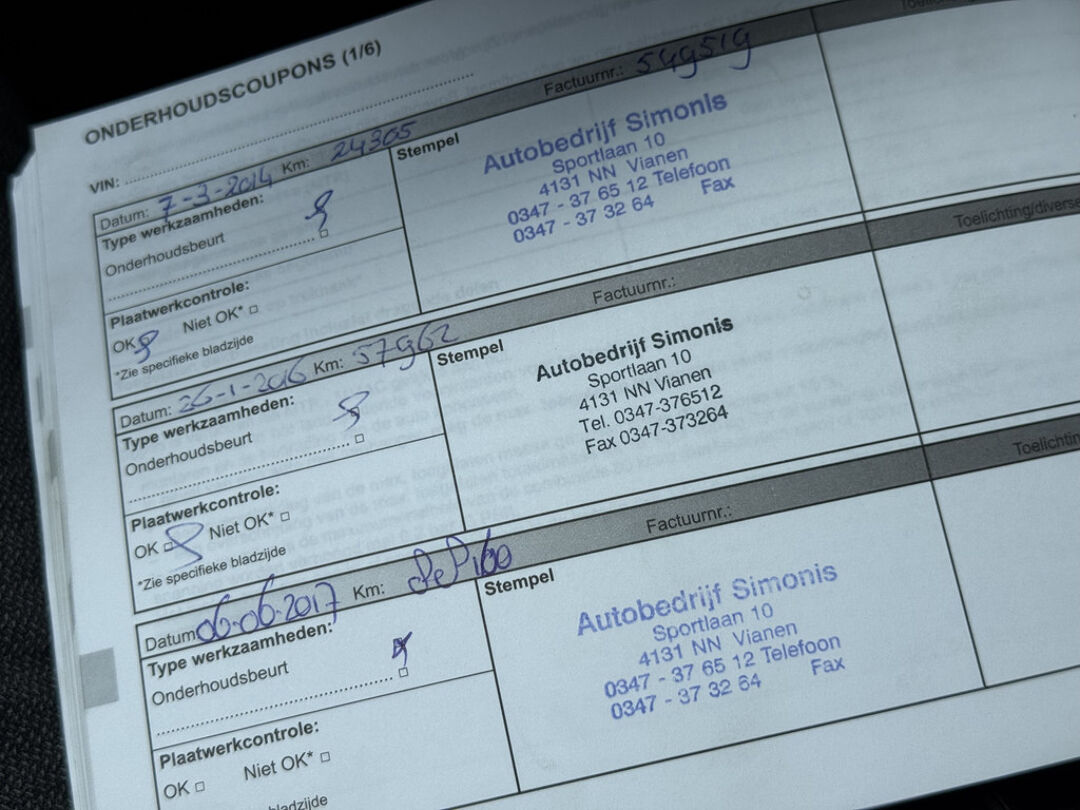 ONDERHOUDSCOUPONS (1/6)
VIN:
Datum: 7-3-2014 Km: 24305 Factuurnr.: 549519
Type werkzaamheden:
Onderhoudsbeurt
Plaatwerkcontrole:
OK Niet OK*
*Zie specifieke bladzijde
Stempel
Autobedrijf Simonis
Sportlaan 10
4131 NN Vianen
0347 - 37 65 12 Telefoon
0347 - 37 32 64 Fax
Datum: 26-1-2016 Km: 57962 Factuurnr.: Toelichting/diverse
Type werkzaamheden:
Onderhoudsbeurt
Plaatwerkcontrole:
OK Niet OK*
*Zie specifieke bladzijde
Stempel
Autobedrijf Simonis
Sportlaan 10
4131 NN Vianen
Tel. 0347-376512
Fax 0347-373264
Datum 06-06-2017 Km: Factuurnr.:
Type werkzaamheden:
Onderhoudsbeurt
Plaatwerkcontrole:
OK Niet OK*
bladzijde
Stempel
Autobedrijf Simonis
Sportlaan 10
4131 NN Vianen
0347 - 37 65 12 Telefoon
0347 - 37 32 64 Fax